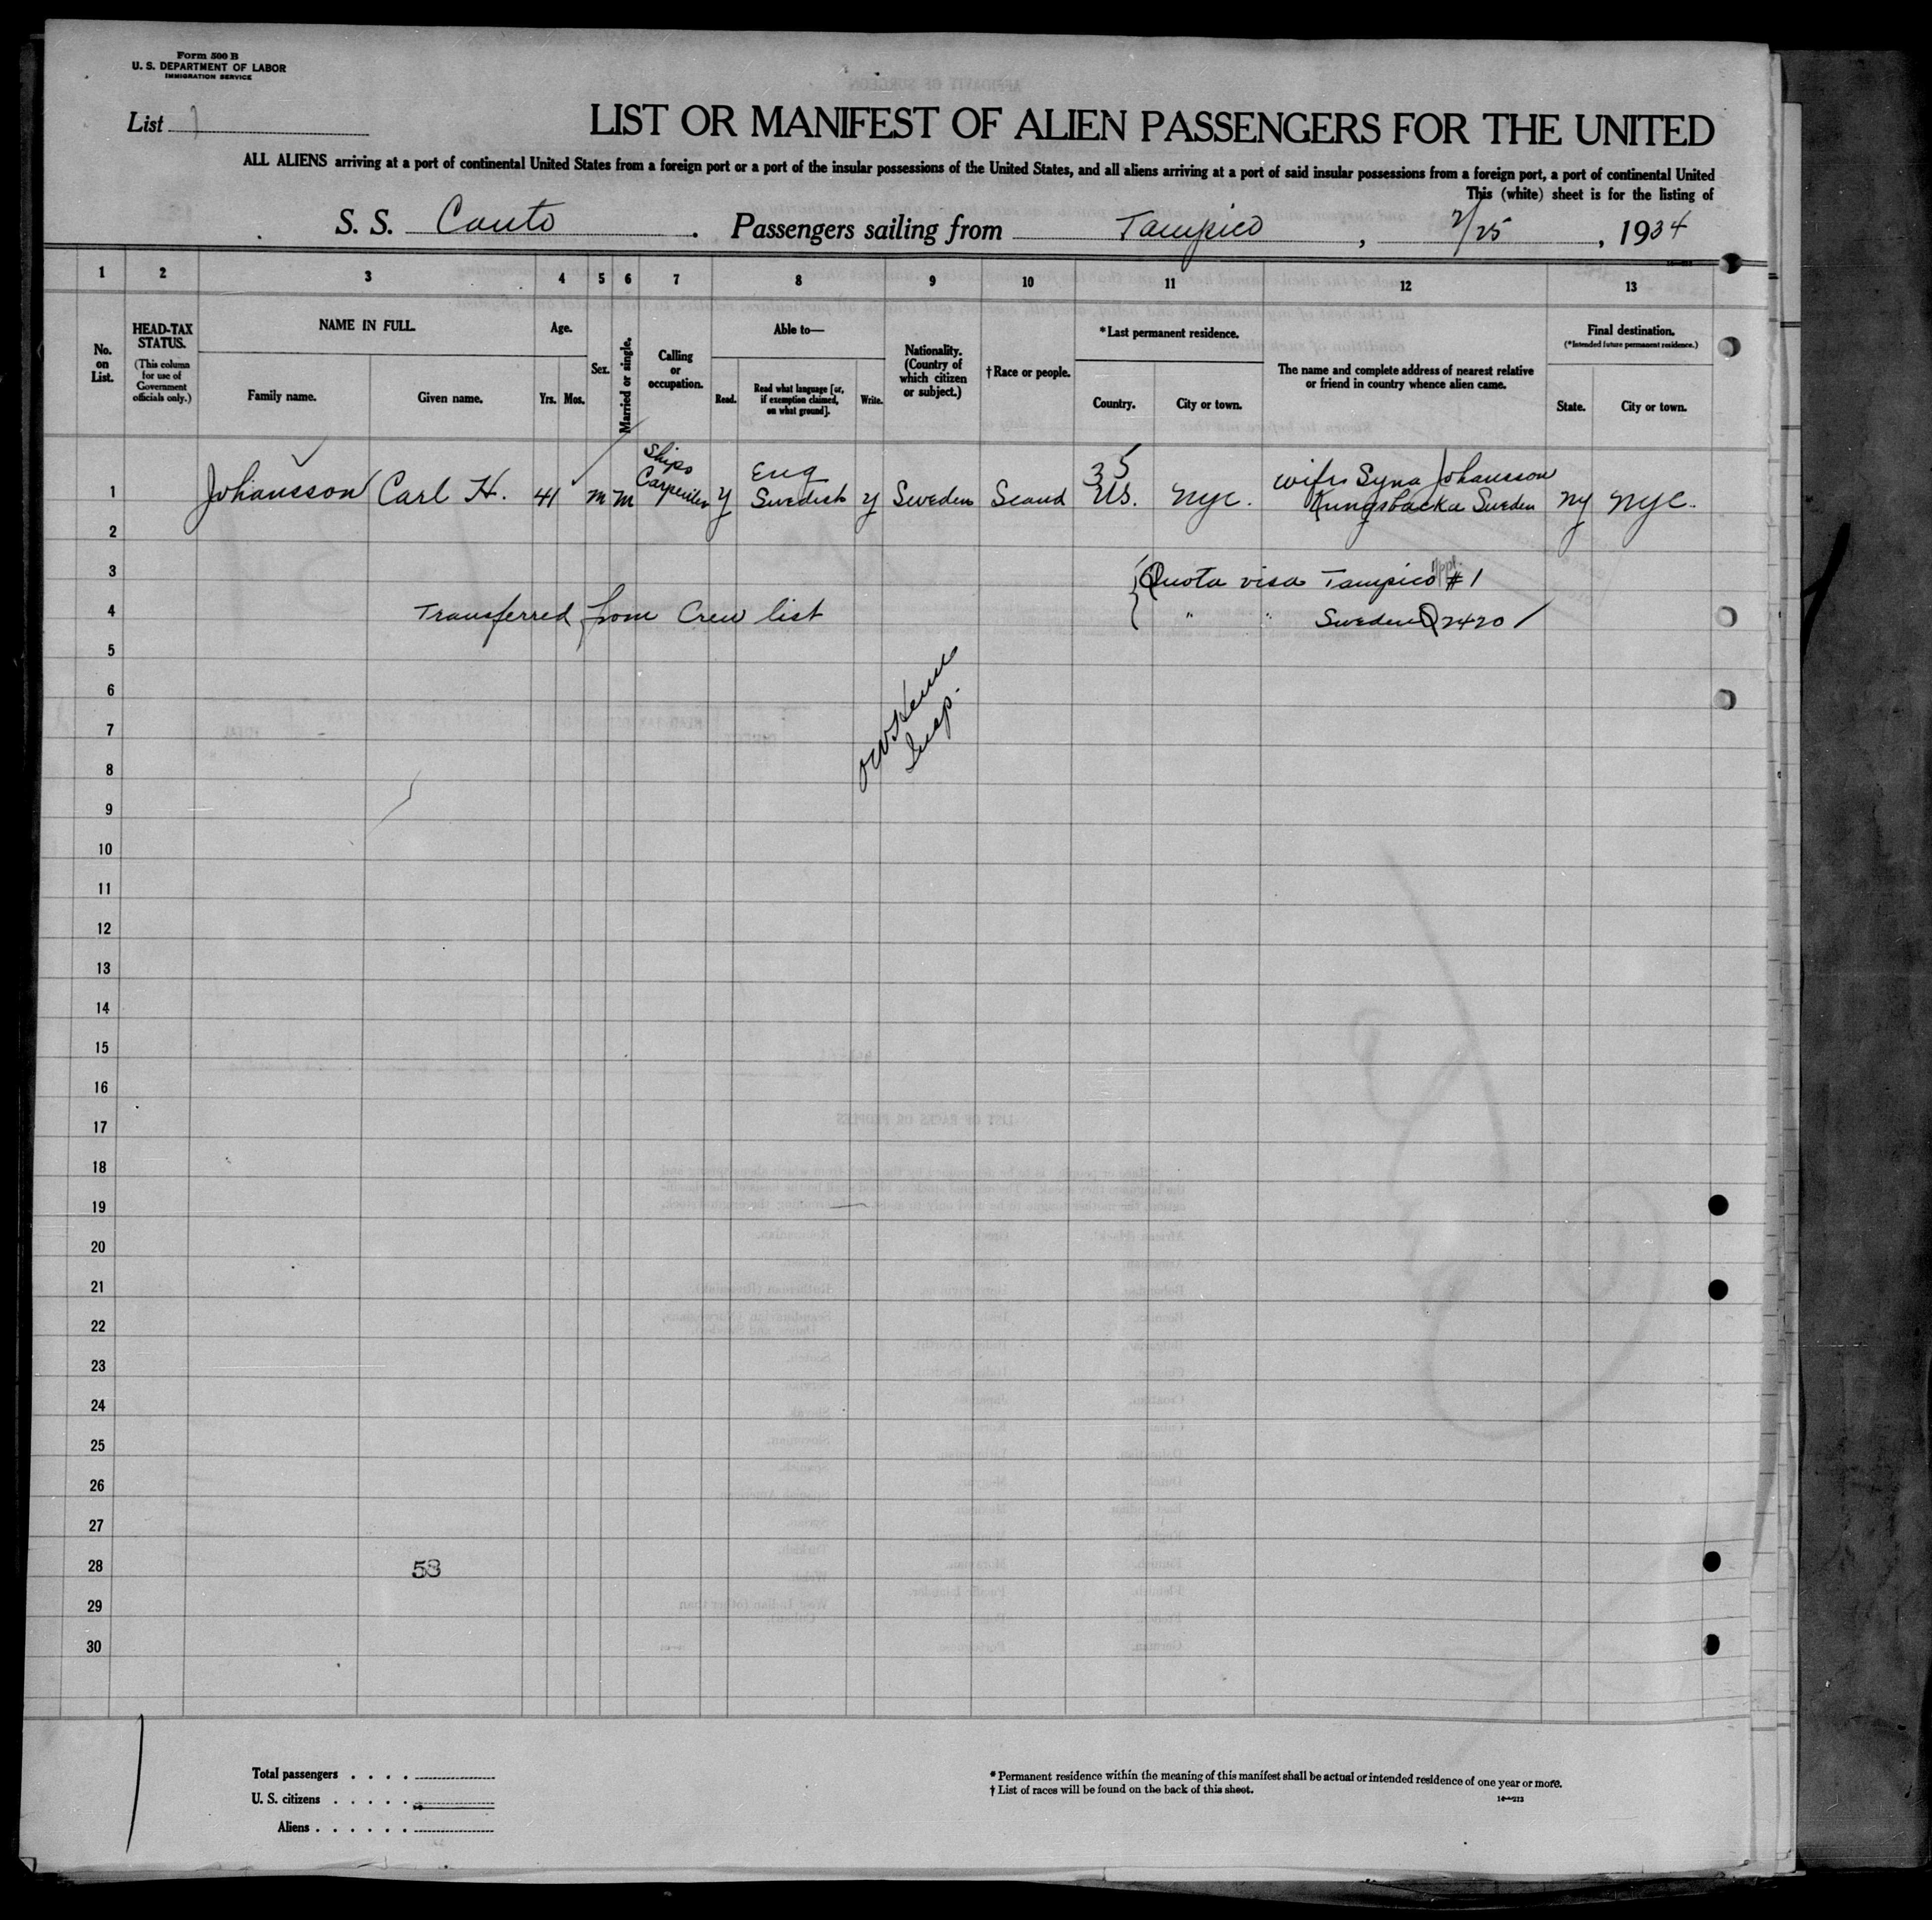 Form 500 B
U. S. DEPARTMENT OF LABOR
IMMIGRATION SERVICE
List
LIST OR MANIFEST OF ALIEN PASSENGERS FOR THE UNITED
ALL ALIENS arriving at a port of continental United States from a foreign port or a port of the insular possessions of the United States, and all aliens arriving at a port of said insular possessions from a foreign port, a port of continental United
This (white) sheet is for the listing of
S. S. Canto . Passengers sailing from Tampico , 2/25 , 1934
1 2 3 4 5 6 7 8 9 10 11 12 13
No. on List.
HEAD-TAX STATUS.
(This column for use of Government officials only.)
NAME IN FULL.
Family name. Given name.
Age.
Yrs. Mos.
Sex.
Married or single.
Calling or occupation.
Able to—
Read. Read what language [or, if exemption claimed, on what ground]. Write.
Nationality. (Country of which citizen or subject.)
†Race or people.
*Last permanent residence.
Country. City or town.
The name and complete address of nearest relative or friend in country whence alien came.
Final destination.
(*Intended future permanent residence.)
State. City or town.
1 Johansson Carl H. 41 m m Ships Carpenter y Eng Swedish y Sweden Scand 35 US. NYC. wife Syna Johansson Kungsbacka Sweden NY NYC.
2
3 Quota visa Tampico #1
4 Transferred from Crew list " " Sweden Q 2420
5
6
7 Insp.
8
9
10
11
12
13
14
15
16
17
18
19
20
21
22
23
24
25
26
27
28 53
29
30
Total passengers . . . .
U. S. citizens . . . . .
Aliens . . . . . .
* Permanent residence within the meaning of this manifest shall be actual or intended residence of one year or more.
† List of races will be found on the back of this sheet.